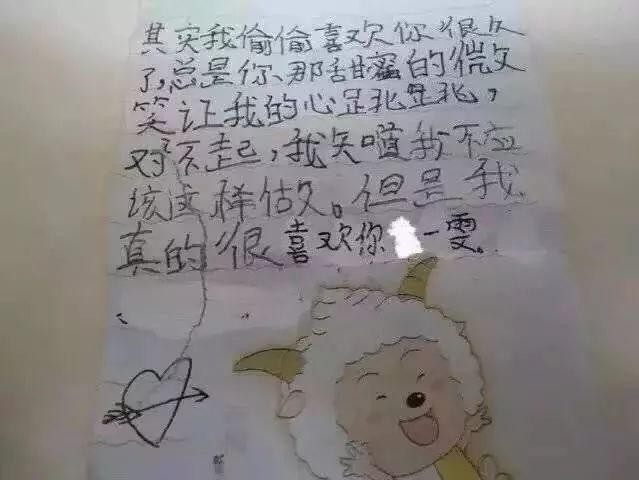 其实我偷偷喜欢你很久
了,总是你那甜蜜的微
笑让我的心是兆是兆,
对不起,我矢道我不应
该这样做。但是我
真的很喜欢你 一雯。